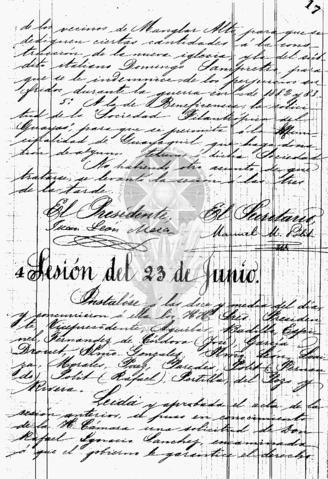 17
de los vecinos de Manglar Alto, para que se
dediquen ciertas cantidades á la cons-
trucción de la nueva iglesia, y la del súb-
dito italiano Domingo Sanguinetti, para
que se le indemnice de los perjuicios su-
fridos durante la guerra civil de 1882 y 83.
5ª A la de Beneficencia, la solici-
tud de la Sociedad Filantrópica del
Guayas, para que se permita á la Muni-
cipalidad de Guayaquil, que haga
dicha Sociedad
No habiendo otro asunto de que
tratarse, se levantó la sesión á las tres
de la tarde.
El Presidente, El Secretario,
Juan León Mera Manuel M. Pólit
Sesión del 23 de Junio.
Instalóse á las doce y media del día,
y concurrieron á ella los HH. Señores Presiden-
te, Vicepresidente, Aguirre, Espi-
nel, Fernández de Córdova (José), García
Drouet, González,
Morales, Paredes, Pólit
Pólit (Rafael), Portilla, del Pozo y
Rivera.
Leída y aprobada el acta de la
sesión anterior, se puso en conocimiento
de la H. Cámara una solicitud de Don
Rafael Ignacio Sánchez, encaminada
á que el gobierno le garantice el derecho